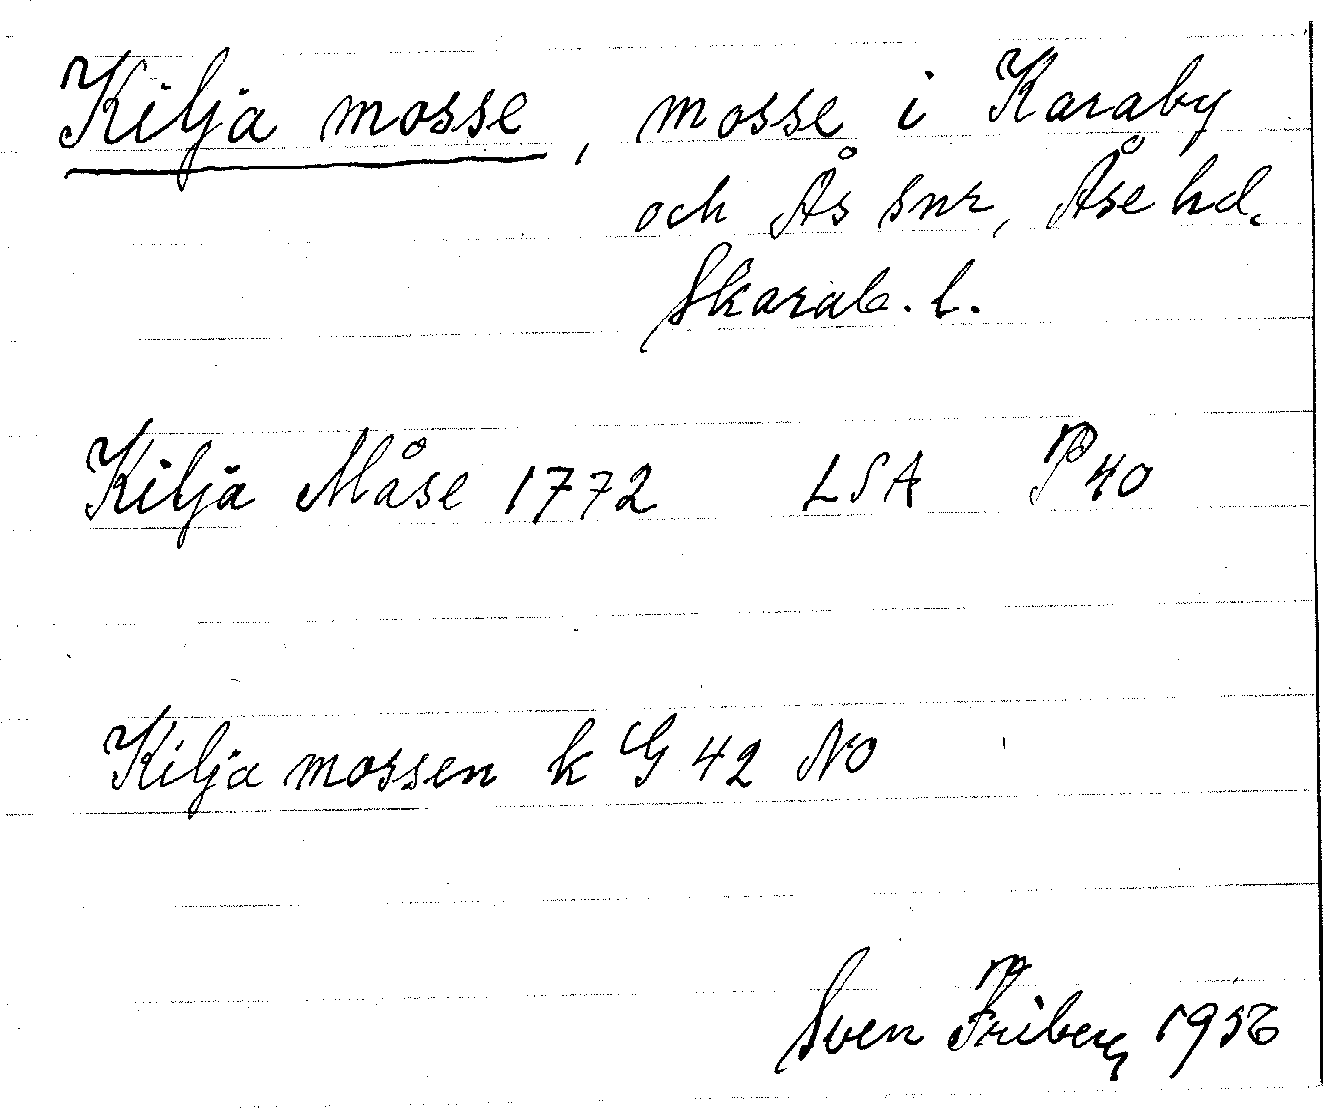 Kilja mosse, mosse i Karaby
och Ås snr, Åse hd.
Skarab. l.
Kilja Måse 1772 LSA P 40
Kilja mossen k G 42 NO
Sven Friberg 1956